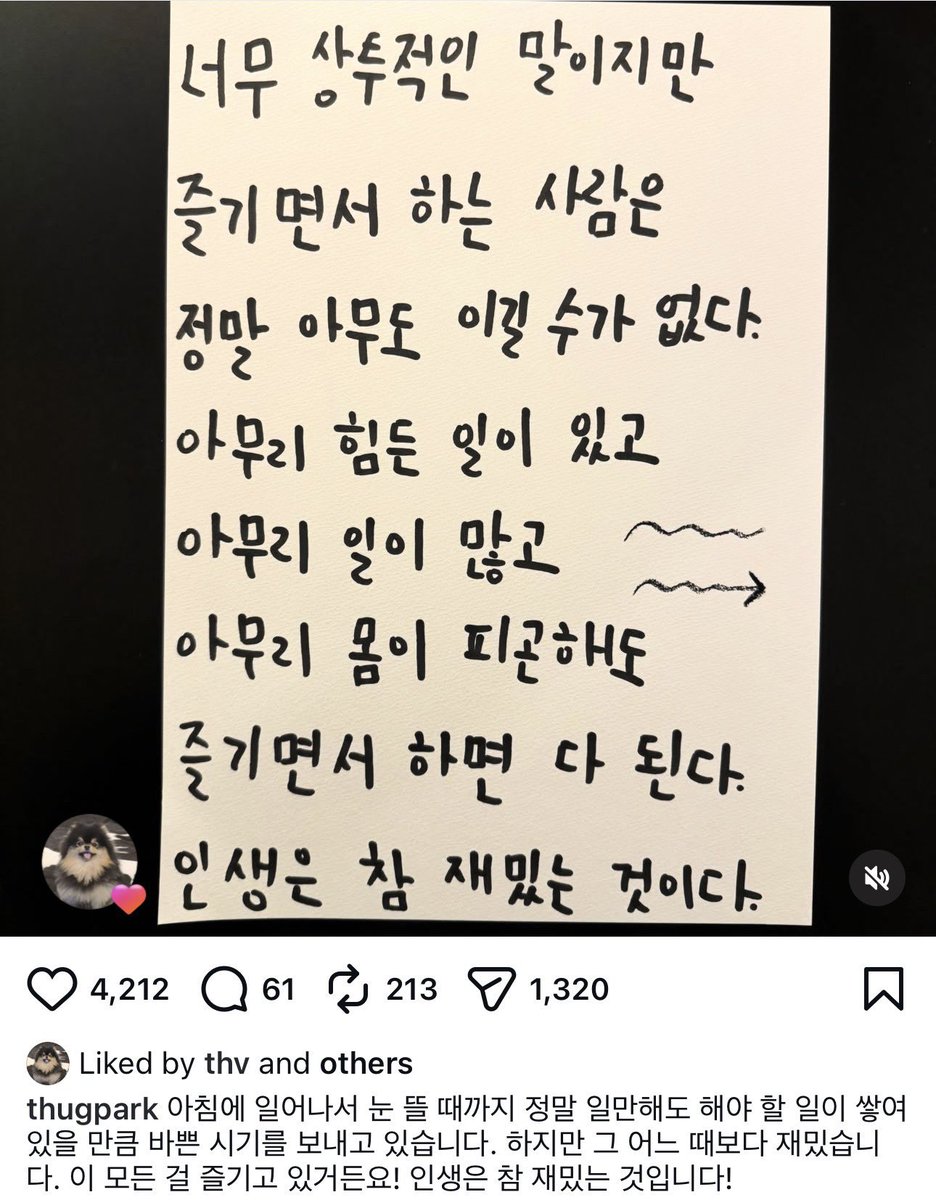 너무 상투적인 말이지만
즐기면서 하는 사람은
정말 아무도 이길 수가 없다.
아무리 힘든 일이 있고
아무리 일이 많고
아무리 몸이 피곤해도
즐기면서 하면 다 된다.
인생은 참 재밌는 것이다.
4,212 61 213 1,320
Liked by thv and others
thugpark 아침에 일어나서 눈 뜰 때까지 정말 일만해도 해야 할 일이 쌓여
있을 만큼 바쁜 시기를 보내고 있습니다. 하지만 그 어느 때보다 재밌습니
다. 이 모든 걸 즐기고 있거든요! 인생은 참 재밌는 것입니다!